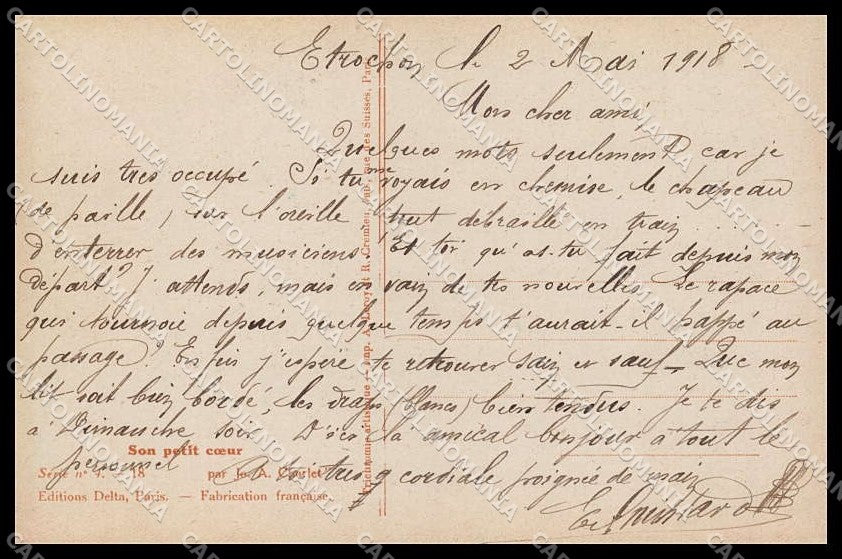 le 2 Mai 1918
Mon cher ami,
Quelques mots seulement car je
suis tres occupé. Si tu me voyais en chemise, le chapeau
de paille, sur l'oreille tout debraillé en train ........
d'enterrer des musiciens! Et toi qu'as-tu fait depuis mon
départ? J'attends, mais en vain de tes nouvelles. Le rapace
qui tournoie depuis quelque temps t'aurait-il happé au
passage? Enfin j'espère te retrouver sain et sauf. Que mon
lit soit bien bordé, les draps (blancs) bien tendus. Je te dis
à Dimanche soir. amical bonjour à tout le
personnel cordiale poignée de main
Son petit cœur
Série n° 18 par Jo.
Editions Delta, Paris. — Fabrication française.
Trichromie artistique — Imp. et R. Cremieu, rue des Suisses, Paris
CARTOLINOMANIA